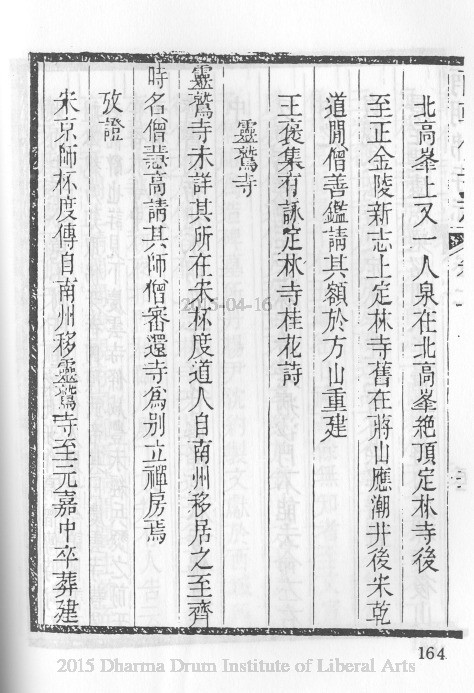 北高峯上又一人泉在北高峯絶頂定林寺後
至正金陵新志上定林寺舊在蔣山應潮井後宋乾
道閒僧善鑑請其額於方山重建
王裦集有詠定林寺桂花詩
靈鷲寺
靈鷲寺未詳其所在宋杯度道人自南州移居之至齊
時名僧慧高請其師僧審還寺爲别立禪房焉
攷證
宋京師杯度傳自南州移靈鷲寺至元嘉中卒葬建
2015-04-16
164
2015 Dharma Drum Institute of Liberal Arts